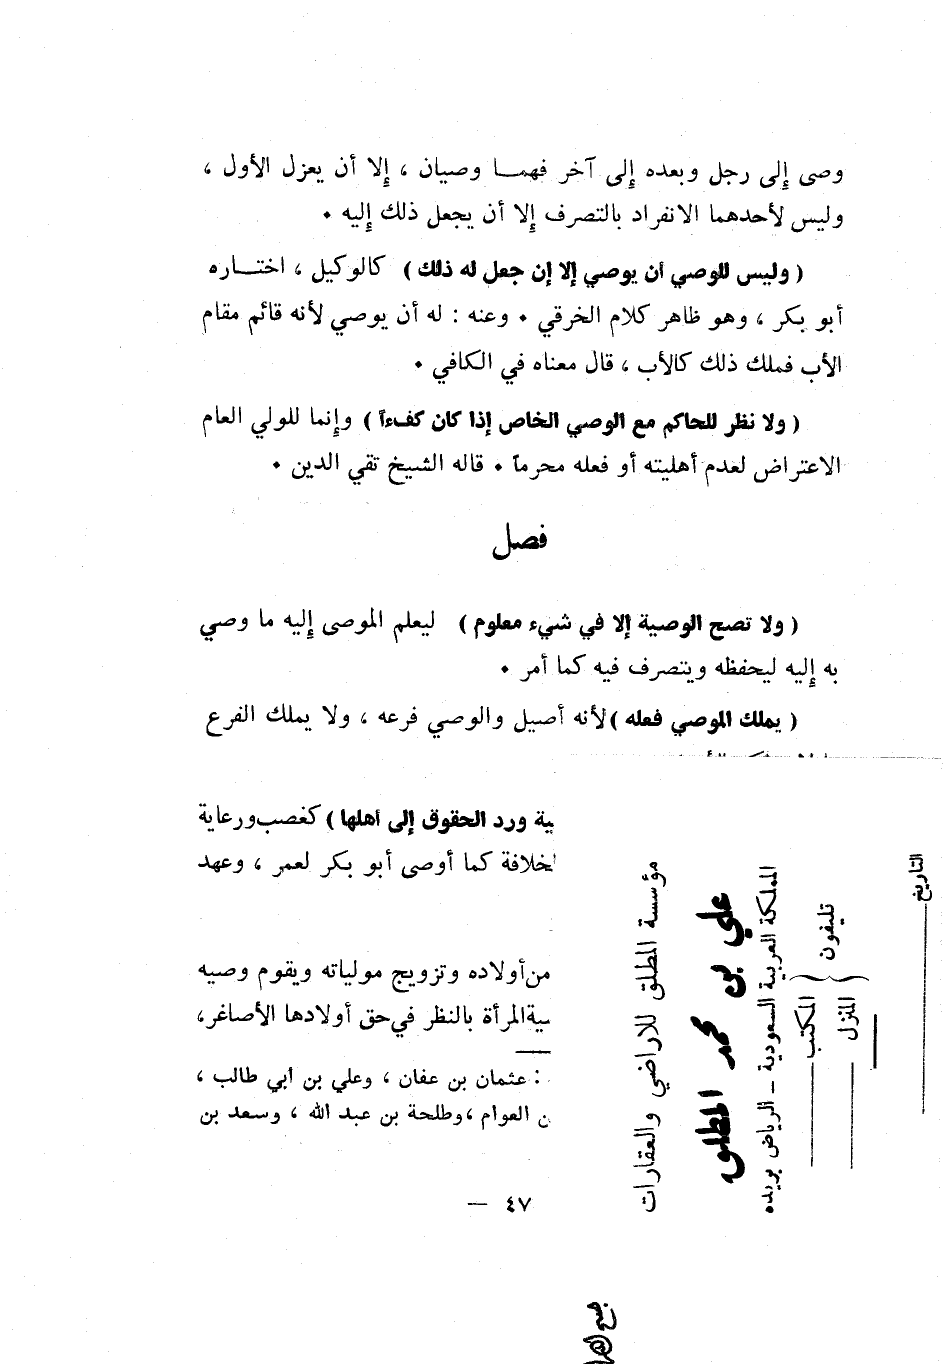 وصى إلى رجل وبعده إلى آخر فهمــا وصيان ، إلا أن يعزل الأول ،
وليس لأحدهما الانفراد بالتصرف إلا أن يجعل ذلك إليه •
( وليس للوصي أن يوصي إلا إن جعل له ذلك ) كالوكيل ، اختــاره
أبو بكر ، وهو ظاهر كلام الخرقي • وعنه : له أن يوصي لأنه قائم مقام
الأب فملك ذلك كالأب ، قال معناه في الكافي •
( ولا نظر للحاكم مع الوصي الخاص إذا كان كفءاً ) وإنما للولي العام
الاعتراض لعدم أهليته أو فعله محرماً • قاله الشيخ تقي الدين •
فصل
( ولا تصح الوصية إلا في شيء معلوم ) ليعلم الموصى إليه ما وصي
به إليه ليحفظه ويتصرف فيه كما أمر •
( يملك الموصي فعله ) لأنه أصيل والوصي فرعه ، ولا يملك الفرع
ورد الحقوق إلى أهلها ) كغصب ورعاية
كما أوصى أبو بكر لعمر ، وعهد
من أولاده وتزويج مولياته ويقوم وصيه
المرأة بالنظر في حق أولادها الأصاغر،
: عثمان بن عفان ، وعلي بن أبي طالب ،
العوام ، وطلحة بن عبد الله ، وسعد بن
٤٧ —
مؤسسة المطلق للاراضي والعقارات
علي بن محمد المطلق
المملكة العربية السعودية – الرياض بريده
تليفون
المكتب
المنزل
التاريخ